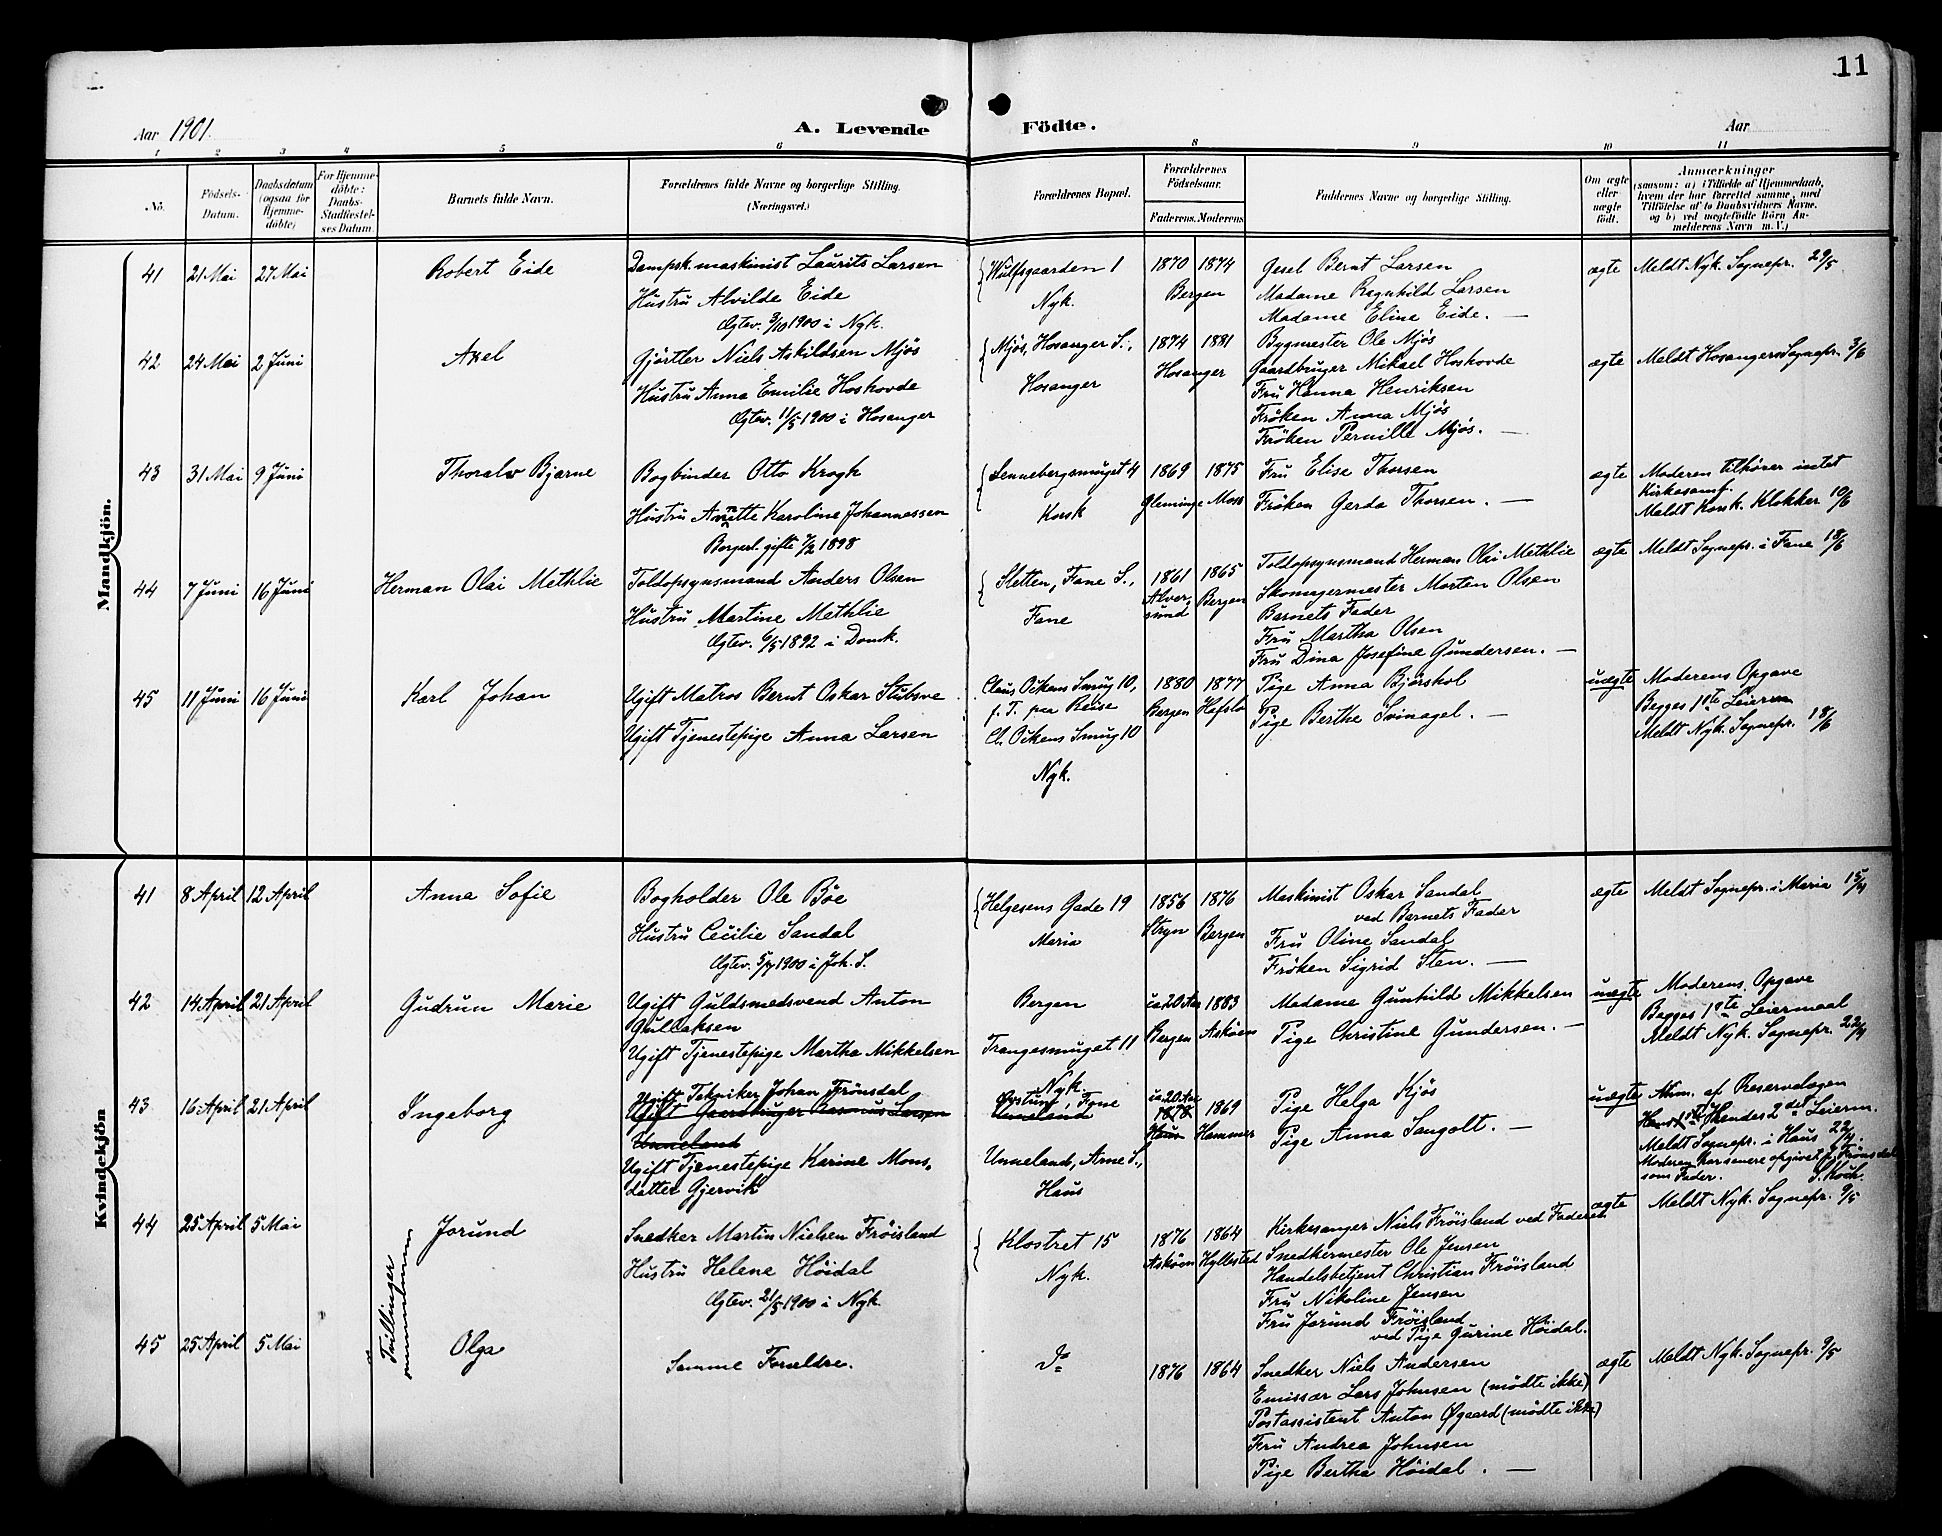 11
Aar 1901.
A. Levende Födte.
Aar
1 2 3 4 5 6 8 9 10 11
No.
Födsels-Datum.
Daabsdatum (ogsaa for Hjemme-döbte)
For Hjemme-döbte: Daabs-Stadfæstel-ses Datum.
Barnets fulde Navn.
Forældrenes fulde Navne og borgerlige Stilling.
(Næringsvei.)
Forældrenes Bopæl.
Forældrenes Födselsaar.
Faderens. Moderens
Faddernes Navne og borgerlig Stilling.
Om ægte eller uægte født.
Anmærkninger
(saasom: a) i Tilfælde af Hjemmedaab,
hvem der har forrettet samme, med
Tilföielse af to Daabsvidners Navne,
og b) ved uægtefödte Börn An-
melderens Navn m. V.)
Mandkjön.
41 21 Mai 27 Mai Robert Eide Dampsk.maskinist Laurits Larsen Wulfsgaarden 1 1870 1874 Gesel Bernt Larsen ægte Meldt Nyk. Sognepr. 29/5
Hustru Alvilde Eide Nyk. Bergen Madame Ragnhild Larsen
Ægtev. 3/10 1900 i Nyk. Madame Eline Eide. —
42 24 Mai 2 Juni Axel Gjørtler Niels Askildsen Mjøs Mjøs, Hosanger S., 1874 1881 Bygmester Ole Mjøs ægte Meldt Hosangers Sognepr. 3/6
Hustru Anna Emilie Hoshovde Hosanger Hosanger Gaardbruger Mikael Hoshovde
Ægtev. 11/5 1900 i Hosanger Fru Hanna Henriksen
Frøken Anna Mjøs
Frøken Pernille Mjøs. —
43 31 Mai 9 Juni Thoralv Bjarne Bogbinder Otto Krogh Sennebergsmuget 4 1869 1875 Fru Elise Thorsen ægte Moderen tilhører intet
Kirkesamf.
Hustru Anette Karoline Johannessen Korsk Gleminge Moss Frøken Gerda Thorsen. — Meldt Korsk. Klokker 10/6
Borgerl. gifte 7/2 1898
44 7 Juni 16 Juni Herman Olai Methlie Toldopsynsmand Anders Olsen Sletten, Fane S., 1861 1865 Toldopsynsmand Herman Olai Methlie ægte Meldt Sognepr. i Fane 18/6
Hustru Martine Methlie Fane Alver,sund Bergen Skomagermester Morten Olsen
Ægtev. 6/5 1892 i Domk. Barnets Fader
Fru Martha Olsen
Fru Dina Josefine Gundersen. —
45 11 Juni 16 Juni Karl Johan Ugift Matros Bernt Oskar Stubsve Claus Ockens Smug 10, 1880 1877 Pige Anna Bjørshol uægte Moderens Opgave
f. T. paa Reise Bergen Hafslo Pige Berthe Svinagel. — Begges 1ste Leierm
Ugift Tjenestepige Anna Larsen Cl. Ockens Smug 10 Meldt Nyk. Sognepr. 18/6
Nyk.
Kvindekjön
41 8 April 12 April Anna Sofie Bogholder Ole Bøe Helgesens Gade 19 1856 1876 Maskinist Oskar Sandal ægte Meldt Sognepr. i Maria 15/4
ved Barnets Fader
Hustru Cecilie Sandal Maria Stryn Bergen Fru Oline Sandal
Ægtev. 5/7 1900 i Joh. S. Frøken Sigrid Sten. —
42 14 April 21 April Gudrun Marie Ugift Guldsmedsvend Anton Bergen ca 20 Aar 1883 Madame Gunhild Mikkelsen uægte Moderens Opgave
Gullaksen Bergen Askøen Pige Christine Gundersen. — Begges 1ste Leiermaal
Ugift Tjenestepige Martha Mikkelsen Trangesmuget 11 Meldt Nyk. Sognepr. 22/4
Nyk.
43 16 April 21 April Ingeborg Ugift Tekniker Johan Frønsdal Fane ca 20 Aar 1869 Pige Helga Kjøs uægte Anm. af Reservelægen
Ugift Gaardbruger Rasmus Larsen Unneland 1878
Unneland Haus Hammer Pige Anna Sangolt. — Hendes 2det Leierm.
Ugift Tjenestepige Karine Mons, Unneland, Arne S., Meldt Sognepr. i Haus 22/4.
datter Gjervik Haus Moderen har senere opgivet J. Frønsdal
som Fader. S. Koch.
44 25 April 5 Mai Jorund Snedker Martin Nielsen Frøisland Klostret 15 1876 1864 Kirkesanger Niels Frøisland ved Faderen ægte Meldt Nyk. Sognepr. 9/5
Hustru Helene Høidal Nyk. Askøen Hyllestad Snedkermester Ole Jensen
Ægtev. 21/5 1900 i Nyk. Handelsbetjent Christian Frøisland
Fru Nikoline Jensen
Fru Jorund Frøisland
ved Pige Gurine Høidal.
Tvillinger
45 25 April 5 Mai Olga Samme Forældre. do 1876 1864 Snedker Niels Andersen ægte Meldt Nyk. Sognepr. 9/5
Emissær Lars Johnsen (mødte ikke)
Postassistent Anton Øgaard (mødte ikke)
Fru Andrea Johnsen
Pige Bertha Høidal. —